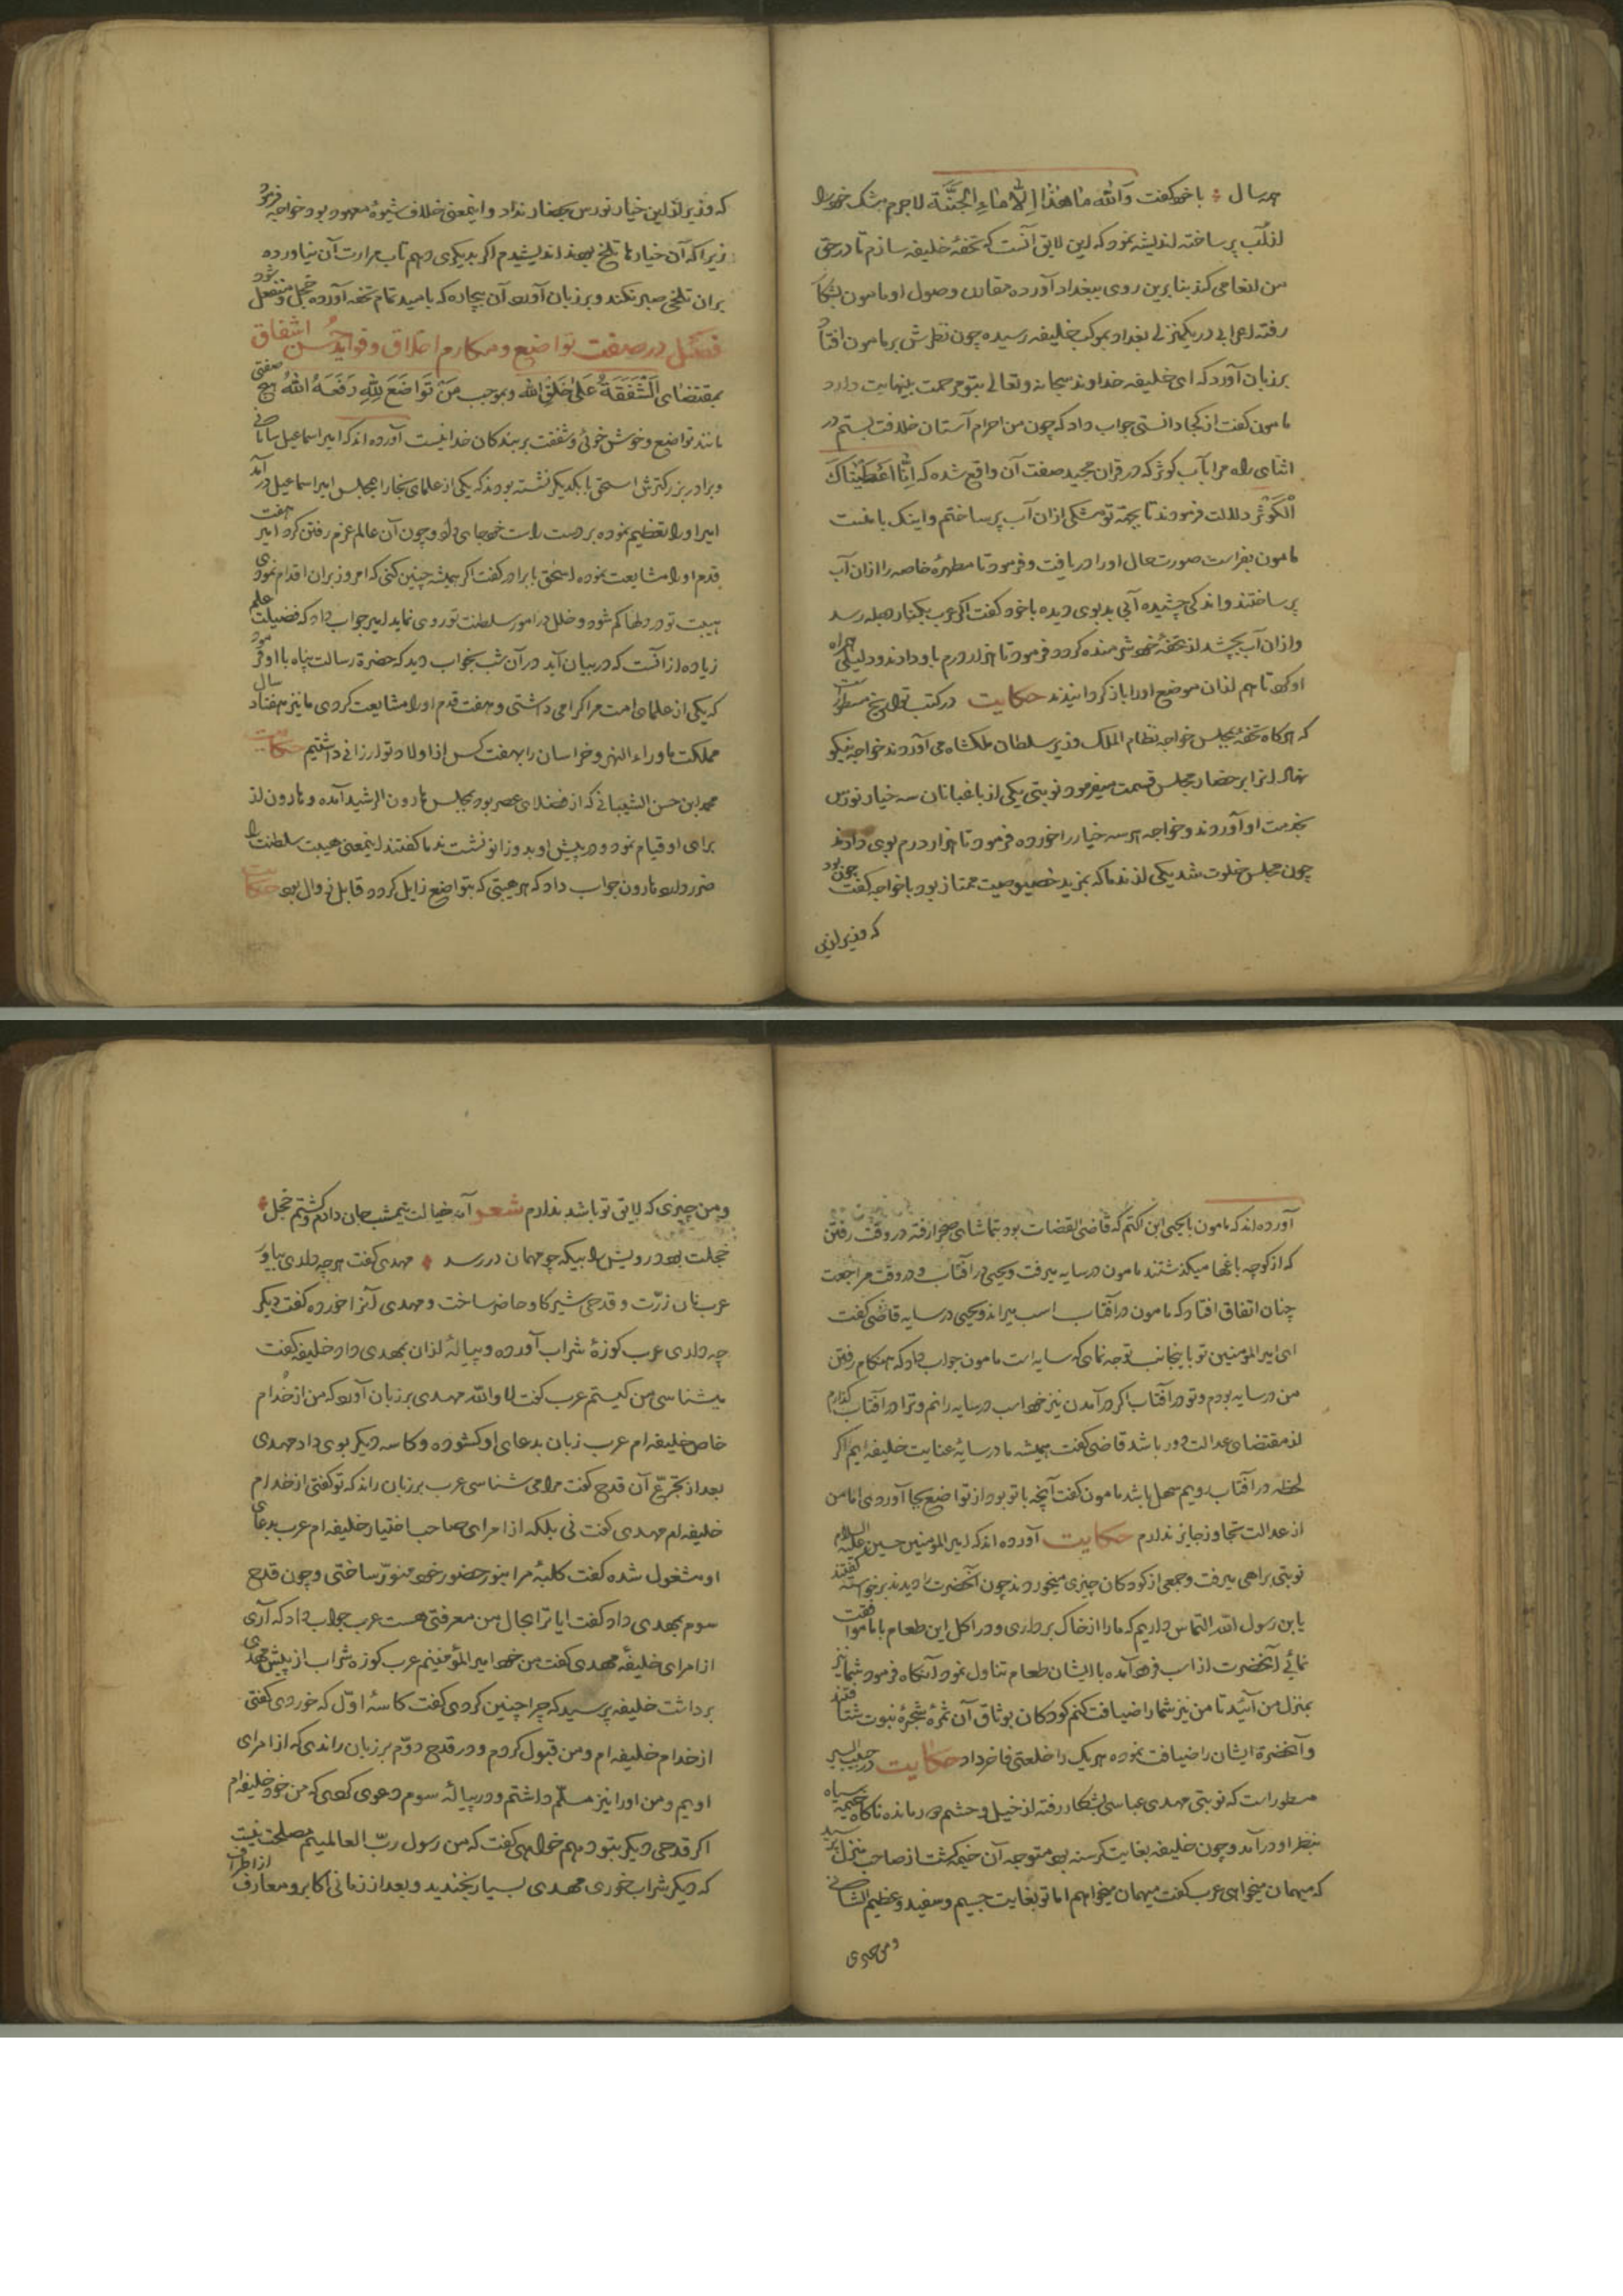 هر سال ؛ با خود گفت وَاللّٰه مَا هٰذَا اِلَّا مَاءِ الْجَنَّةَ لاجرم مشک خود را
از آب پر ساخته اندیشه نمود که این لایق آنست که تحفهٔ خلیفه سازم تا در حق
من انعامی کند بنابرین روی ببغداد آورده مقارن وصول او مامون بشکار
رفته اعرابی در یکمنزلی بغداد بموکب خلیفه رسیده چون نظرش بر مامون افتاد
بر زبان آورد که ای خلیفه خداوند سبحانه وتعالی بتو مرحمت بینهایت دارد
مامون گفت از کجا دانستی جواب داد که چون من احرام آستان خلافت بستم در
اثنای راه مرا بآب کوثر که در قران مجید صفت آن واقع شده که اِنَّا اَعْطَیْنَاکَ
الْکَوْثَرْ دلالت فرمودند تا بجهة تو مشکی ازان آب پر ساختم و اینک با منست
مامون بفراست صورت حال اورا دریافت و فرمود تا مطهرهٔ خاصه را ازان آب
پر ساختند و اندکی چشیده آبی بدبوی دیده با خود گفت اگر عرب بکنار دجله رسد
وازان آب بچشد از تحفهٔ خود شرمنده گردد فرمود تا هزار درم باو دادند و دلیلی همراه
او کرد تا هم ازان موضع اورا باز گردانیدند حکایت در کتب تواریخ مسطور است
که هرگاه تحفهٔ بمجلس خواجه نظام الملک وزیر سلطان ملکشاه می آوردند خواجه نیکو
نهاد انرا بر حضار مجلس قسمت میفرمود نوبتی یکی از باغبانان سه خیار نورس
بخدمت او آوردند و خواجه هر سه خیار را خورده فرمود تا هزار درم بوی دادند
چون مجلس خلوت شد یکی از ندما که بمزید خصوصیت ممتاز بود با خواجه گفت چون بود
که وزیر ازین
که وزیر ازین خیار نورس بحضار نداد و اینمعنی خلاف شیوهٔ معهود بود خواجه فرمود
زیرا که آن خیارها تلخ بود اندیشیدم اگر بدیگری دهم تاب مرارت آن نیاورده
بران تلخی صبر نکند و بر زبان آورد آن بیچاره که بامید تمام تحفه آورده خجل و منفعل شود
فصل در صفت تواضع و مکارم اخلاق و فواید حُسن اشفاق
بمقتضای اَلشَّفَقَةُ عَلٰی خَلْقِ اللّٰه و بموجب مَنْ تَوَاضَعَ لِلّٰهِ رَفَعَهُ اللّٰهُ هیچ صفتی
مانند تواضع و خوش خوئی و شفقت بر بندکان خدا نیست آورده اند که امیر اسماعیل سامانی
و برادر بزرکترش اسحق با یکدیکر نشسته بودند که یکی از علمای بخارا بمجلس امیر اسماعیل در آمد
امیر اورا تعظیم نموده بر دست راست خود جای داد و چون آن عالم عزم رفتن کرد امیر هفت
قدم اورا مشایعت نموده اسحق با برادر گفت اگر همیشه چنین کنی که امروز بران اقدام نمودی
هیبت تو در دلها کم شود و خلل در امور سلطنت تو روی نماید امیر جواب داد که فضیلت علم
زیاده از آنست که در بیان آید در آن شب بخواب دید که حضرة رسالت پناه با او فرمود
که یکی از علمای امت مرا کرامی داشتی و هفت قدم اورا مشایعت کردی ما نیز هفتاد سال
مملکت ماوراء النهر و خراسان را بهفت کس از اولاد تو ارزانی داشتیم حکایت
محمد ابن حسن الشیبانی که از فضلای عصر بود بمجلس هارون الرشید آمده و هارون از
برای او قیام نمود و در پیش او بدو زانو نشست ندما گفتند اینمعنی هیبت سلطنت را
ضرر دارد هارون جواب داد که هر هیبتی که بتواضع زایل گردد قابل زوال بود حکایت
آورده اند که مامون با یحیی ابن اکثم که قاضی القضات بود بتماشای صحرا رفته در وقت رفتن
که از کوچه باغها میکذشتند مامون در سایه میرفت و یحیی در آفتاب و در وقت مراجعت
چنان اتفاق افتاد که مامون در آفتاب اسب میراند و یحیی در سایه قاضی گفت
ای امیر المومنین تو باینجانب توجه نمای که سایه است مامون جواب داد که هنکام رفتن
من در سایه بودم و تو در آفتاب اگر در آمدن نیز خود اسب در سایه رانم و ترا در آفتاب گذارم
از مقتضای عدالت دور باشد قاضی گفت همیشه ما در سایهٔ عنایت خلیفه ایم اگر
لحظه در آفتاب رویم سهل باشد مامون گفت آنچه با تو بود از تواضع بجا آوردی اما من
از عدالت تجاوز جایز ندارم حکایت آورده اند که امیر المومنین حسین علیه السلام
نوبتی براهی میرفت و جمعی از کودکان چیزی میخوردند چون آنحضرت را دیدند برخواسته گفتند
یابن رسول الله التماس داریم که ما را از خاک برداری و در اکل این طعام با ما موافقت
نمائی آنحضرت از اسب فرود آمده با ایشان طعام تناول نمود آنکاه فرمود شما نیز
بمنزل من آئید تا من نیز شما را ضیافت کنم کودکان بوثاق آن ثمرهٔ شجرهٔ نبوت شتافتند
و آنحضرة ایشان را ضیافت نموده هر یک را خلعتی فاخر داد حکایت در حبیب السیر
مسطور است که نوبتی مهدی عباسی بشکار رفته از خیل و حشم دور مانده ناگاه خیمهٔ سیاه
بنظر او در آمد و چون خلیفه بغایت کرسنه بود متوجه آن خیمه گشت از صاحب منزل پرسید
که میهمان میخواهی عرب گفت میهمان میخواهم اما تو بغایت جسیم و سفید و عظیم الشانی
و من چیزی
و من چیزی که لایق تو باشد ندارم شعر آمد خیالت نیمشب جان دادم و گشتم خجل
خجلت بود درویش را بیکه چو مهمان در رسد مهدی گفت هر چه داری بیاور
عرب نان ذرّت و قدحی شیر کاو حاضر ساخت و مهدی آنرا خورده گفت دیگر
چه داری عرب کوزهٔ شراب آورده و پیالهٔ ازان بمهدی داد خلیفه گفت
میشناسی من کیستم عرب گفت لا والله مهدی بر زبان آورد که من از خدام
خاص خلیفه ام عرب زبان بدعای او کشوده و کاسه دیگر بوی داد مهدی
بعد از تجرّع آن قدح گفت مرا می شناسی عرب بر زبان راند که تو گفتی از خدام
خلیفه ام مهدی گفت نی بلکه از امرای صاحب اختیار خلیفه ام عرب بدعای
او مشغول شده گفت کلبهٔ مرا بنور حضور خود منوّر ساختی و چون قدح
سوم بمهدی داد گفت ایا ترا بحال من معرفتی هست عرب جواب داد که آری
از امرای خلیفهٔ مهدی گفت من خود امیر المؤمنینم عرب کوزه شراب از پیش مهدی
برداشت خلیفه پرسید که چرا چنین کردی گفت کاسهٔ اوّل که خوردی گفتی
از خدام خلیفه ام و من قبول کردم و در قدح دوّم بر زبان راندی که از امرای
اویم و من اورا نیز مسلّم داشتم و در پیالهٔ سوم دعوی کردی که من خود خلیفه ام
اگر قدحی دیگر بتو دهم خواهی گفت که من رسول ربّ العالمینم مصلحت نیست
که دیگر شراب خوری مهدی بسیار بخندید و بعد از زمانی اکابر و معارف از اطراف